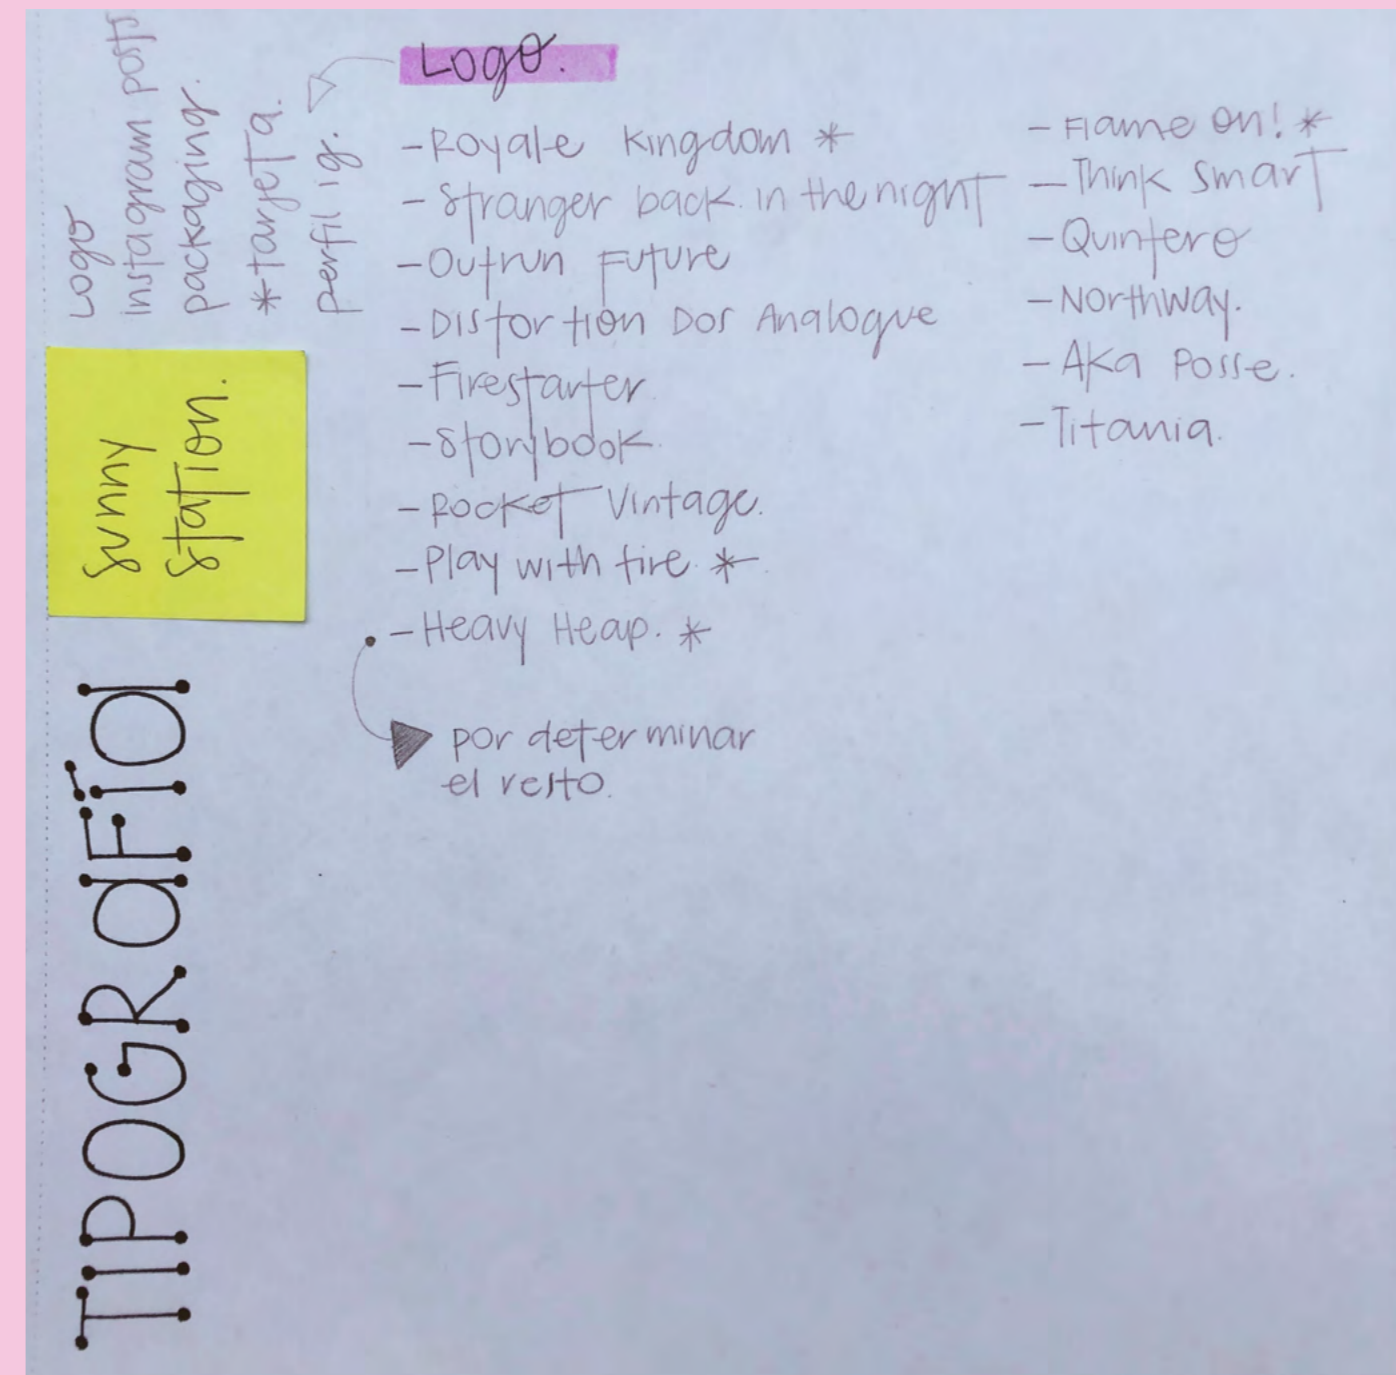 TIPOGRaFÍa
Sunny
Station.
Logo
Instagram posts
packaging.
*targeTa.
perfil ig.
Logo.
-Royale Kingdom *
-Stranger back in the night
-Outrun Future
-Distortion Dos Analogue
-Firestarter.
-Storybook.
-Rocket Vintage.
-Play with fire. *
-Heavy Heap. *
por determinar
el resto.
-Flame on! *
-Think Smart
-Quintero
-Northway.
-Aka Posse.
-Titania.